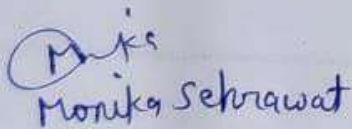 Monika Sehrawat